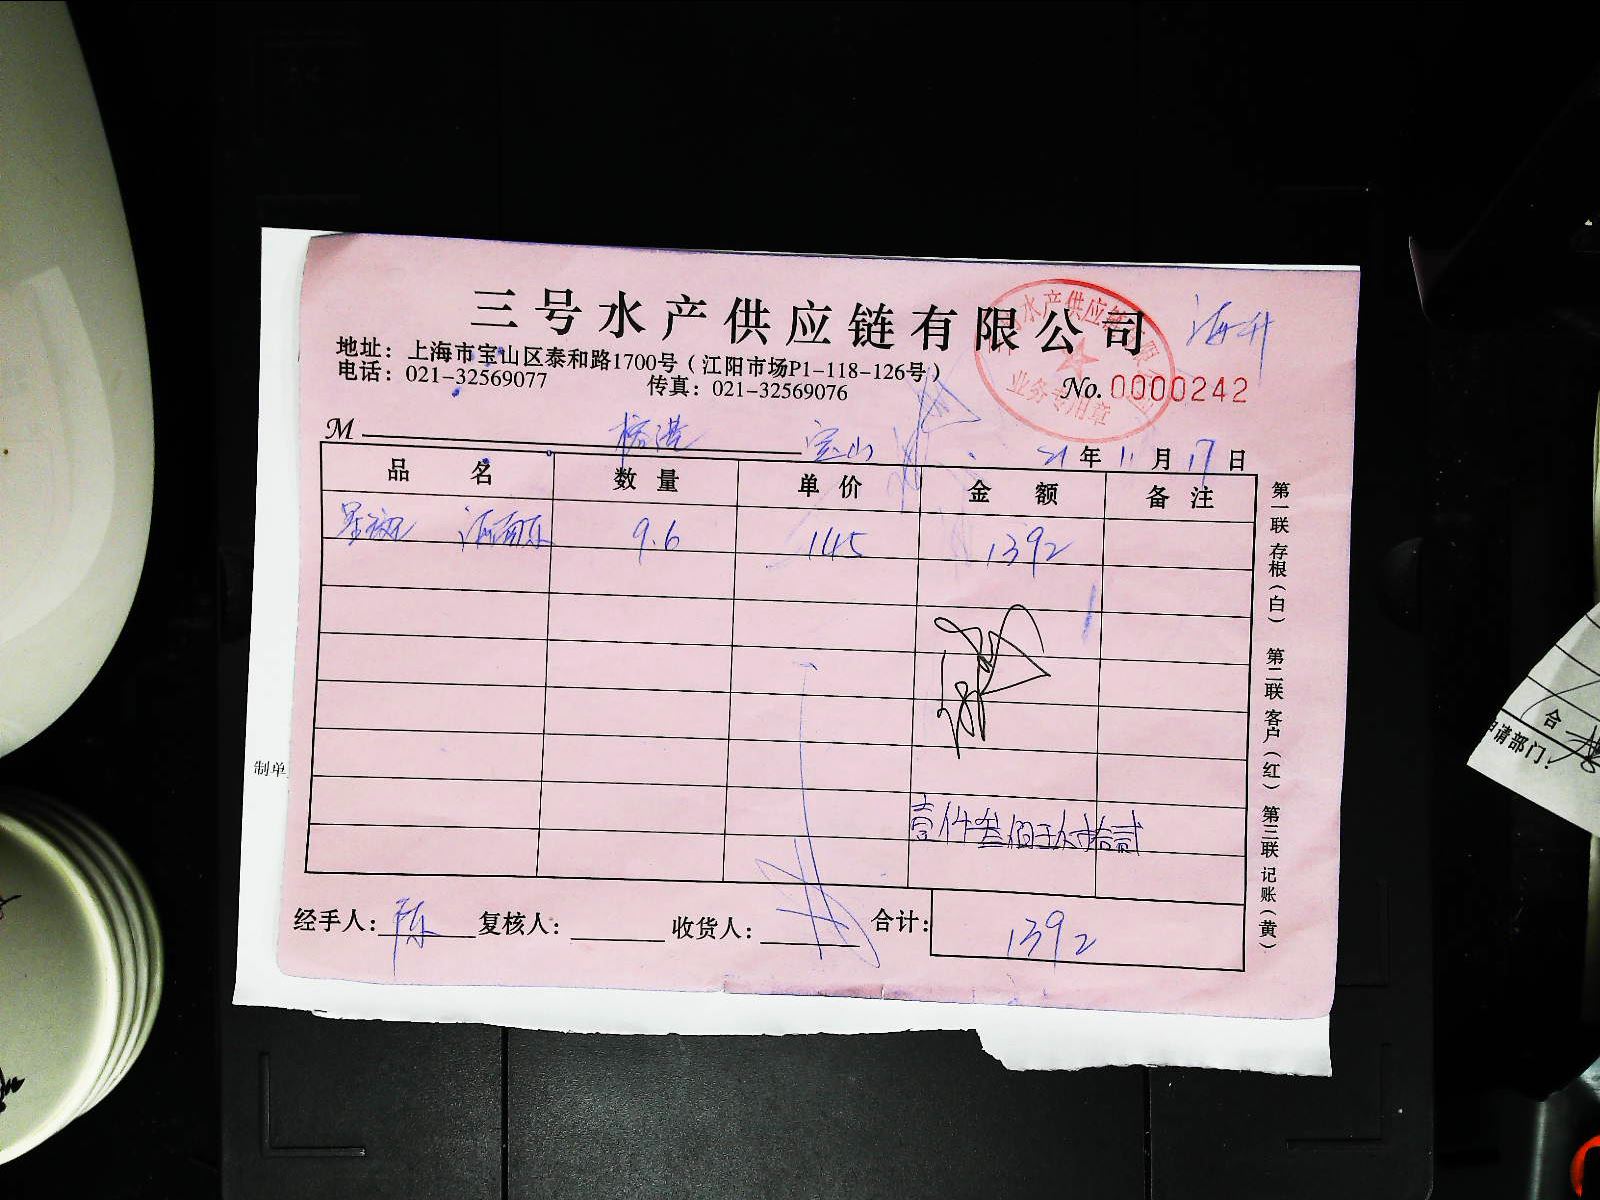 三号水产供应链有限公司
海升
地址：上海市宝山区泰和路1700号（江阳市场P1-118-126号）
电话：021-32569077 传真：021-32569076
No. 0000242
水产供应链 业务专用章
M 宝山 21 年 11 月 17 日
品 名 数 量 单 价 金 额 备 注
星斑 9.6 145 1392
壹仟叁佰玖拾贰
经手人：陈 复核人： 收货人： 合计：1392
第一联 存根（白） 第二联 客户（红） 第三联 记账（黄）
制单
合
申请部门：